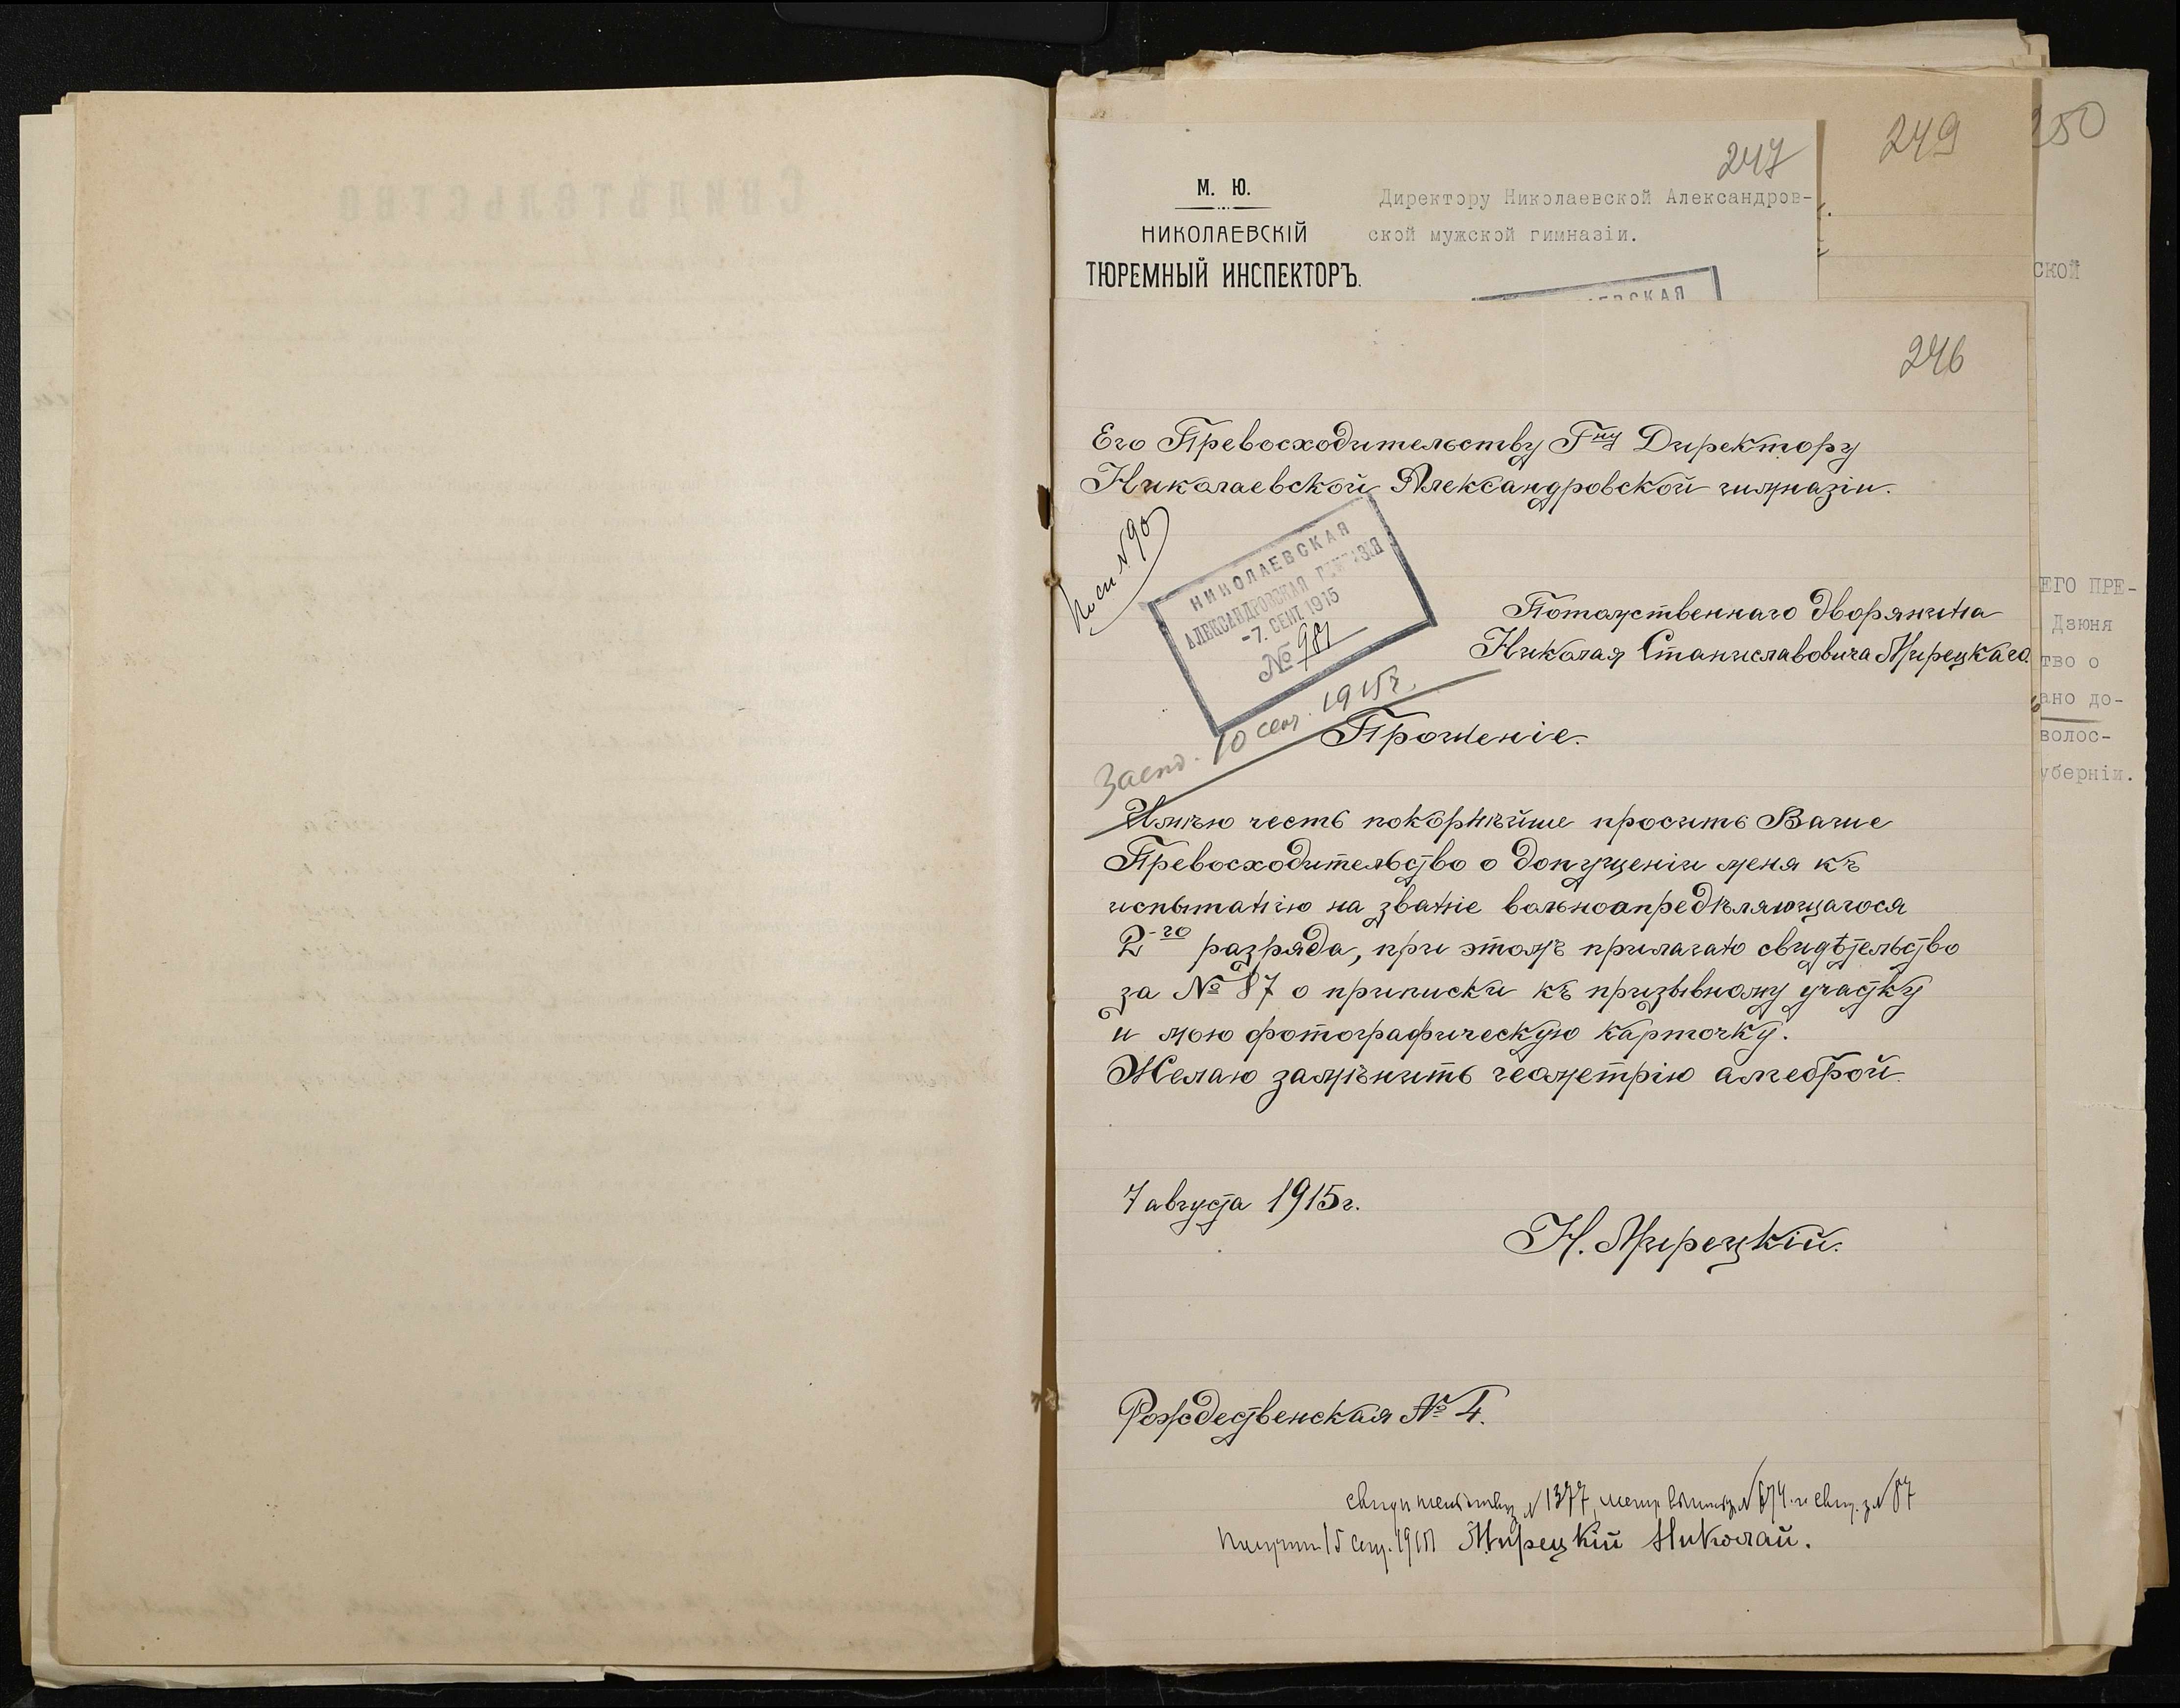 247
249
250
М. Ю.
НИКОЛАЕВСКІЙ
ТЮРЕМНЫЙ ИНСПЕКТОРЪ.
Директору Николаевской Александров-
ской мужской гимназіи.
ЕВСКАЯ
ской
246
Его Превосходительству Г-ну Директору
Николаевской Александровской гимназіи.
НИКОЛАЕВСКАЯ
АЛЕКСАНДРОВСКАЯ ГИМНАЗІЯ
-7. СЕНТ. 1915
№ 981
Потомственнаго дворянина
Николая Станиславовича Мирецкаго.
10 сент. 1915г.
Прошеніе.
Имѣю честь покорнѣйше просить Ваше
Превосходительство о допущеніи меня къ
испытанію на званіе вольноопредѣляющагося
2-го разряда, при этомъ прилагаю свидѣтельство
за № 87 о приписки къ призывному участку
и мою фотографическую карточку.
Желаю замѣнить геометрію алгеброй.
7 августа 1915г.
Н. Мирецкій.
Рождественская № 4.
№ 1377, № 674 и свид. з № 87
Получилъ 15 сент. 1915 Мирецкій Николай.
ЕГО ПРЕ-
Дзюня
тво о
ано до-
волос-
уберніи.